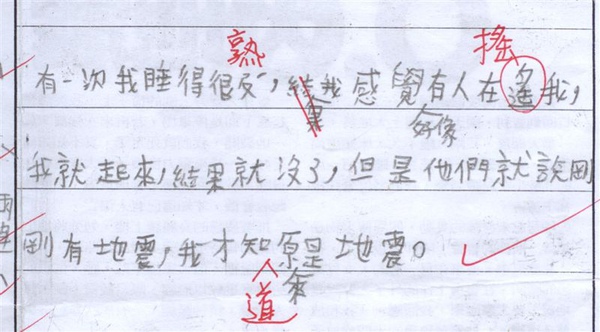 熟 搖
有一次我睡得很,結我感覺有人在遙我,
果 好像
我就起來,結果就沒了,但是他們就說剛
剛有地震,我才知原是地震。
道 來